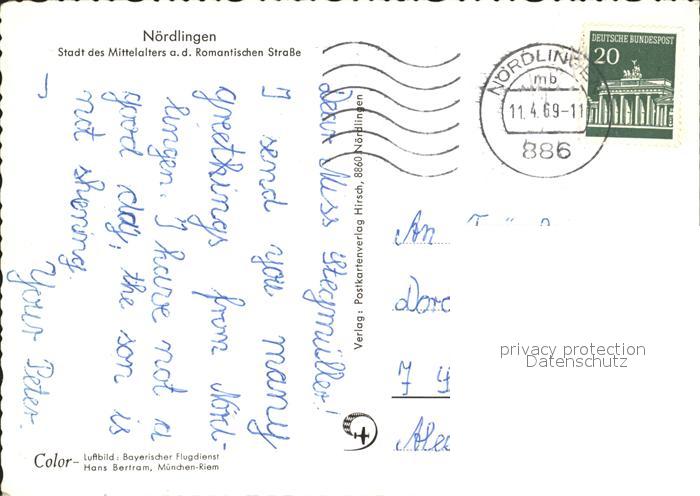 Nördlingen
Stadt des Mittelalters a.d. Romantischen Straße
Dear Miss Stegmüller!
I send you many
greethings from Nörd-
lingen. I have not a
good day, the son is
not shening.
Your Peter.
Color- Luftbild: Bayerischer Flugdienst
Hans Bertram, München-Riem
Verlag: Postkartenverlag Hirsch, 8860 Nördlingen
DEUTSCHE BUNDESPOST
20
NÖRDLINGEN
mb
11.4.69-11
886
An
privacy protection
Datenschutz